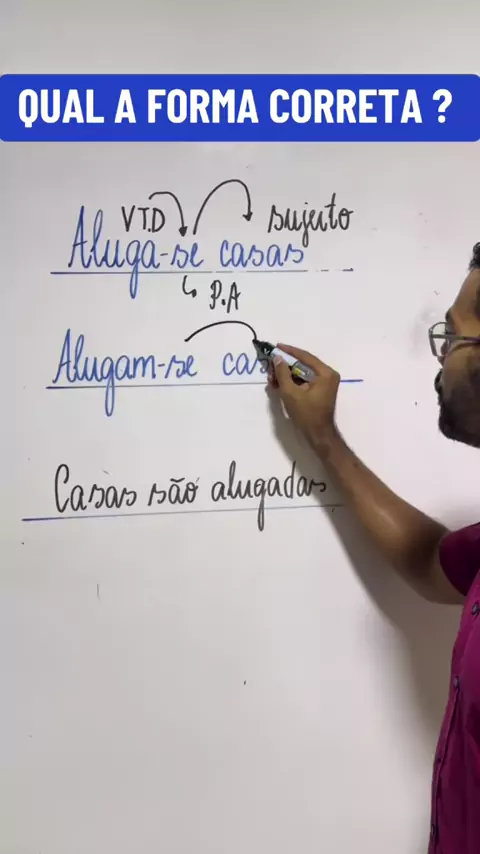 QUAL A FORMA CORRETA ?
VTD sujeito
Aluga-se casas
P.A
Alugam-se
Casas são alugadas